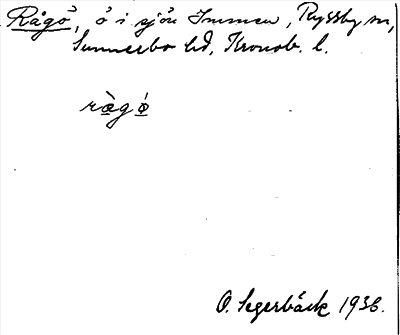 Rågö, ö i sjön Immen, Ryssby sn,
Sunnerbo hd, Kronob. l.
ràgǿ
O. Segerbäck 1936.